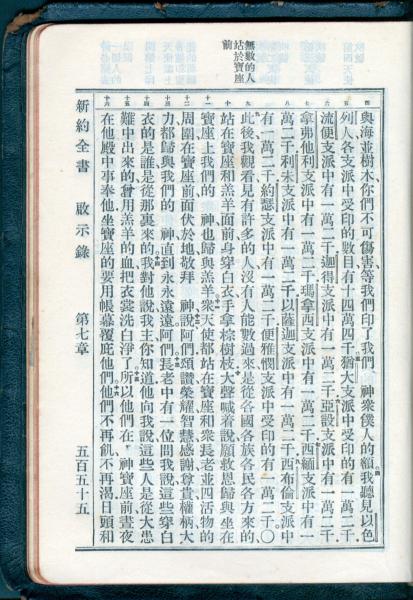 無數的人
站於寶座
前
四
五
六
七
八
九
十
十一
十二
十三
十四
十五
十六
與海並樹木你們不可傷害等我們印了我們 神衆僕人的額我聽見以色
列人各支派中受印的數目有十四萬四千猶大支派中受印的有一萬二千
流便支派中有一萬二千迦得支派中有一萬二千亞設支派中有一萬二千
拿弗他利支派中有一萬二千瑪拿西支派中有一萬二千西緬支派中有一
萬二千利未支派中有一萬二千以薩迦支派中有一萬二千西布倫支派中
有一萬二千約瑟支派中有一萬二千便雅憫支派中受印的有一萬二千○
此後我觀看見有許多的人沒有人能數過來是從各國各族各民各方來的
站在寶座和羔羊面前身穿白衣手拿棕樹枝大聲喊着說願救恩歸與坐在
寶座上我們的 神也歸與羔羊衆天使都站在寶座和衆長老並四活物的
周圍在寶座前面伏於地敬拜 神說阿們頌讚榮耀智慧感謝尊貴權柄大
力都歸與我們的 神直到永永遠遠阿們長老中有一位問我說這些穿白
衣的是誰是從那裏來的我對他說我主你知道他向我說這些人是從大患
難中出來的曾用羔羊的血把衣裳洗白淨了所以他們在 神寶座前晝夜
在他殿中事奉他坐寶座的要用帳幕覆庇他們他們不再飢不再渴日頭和
新約全書 啟示錄 第七章 五百五十五